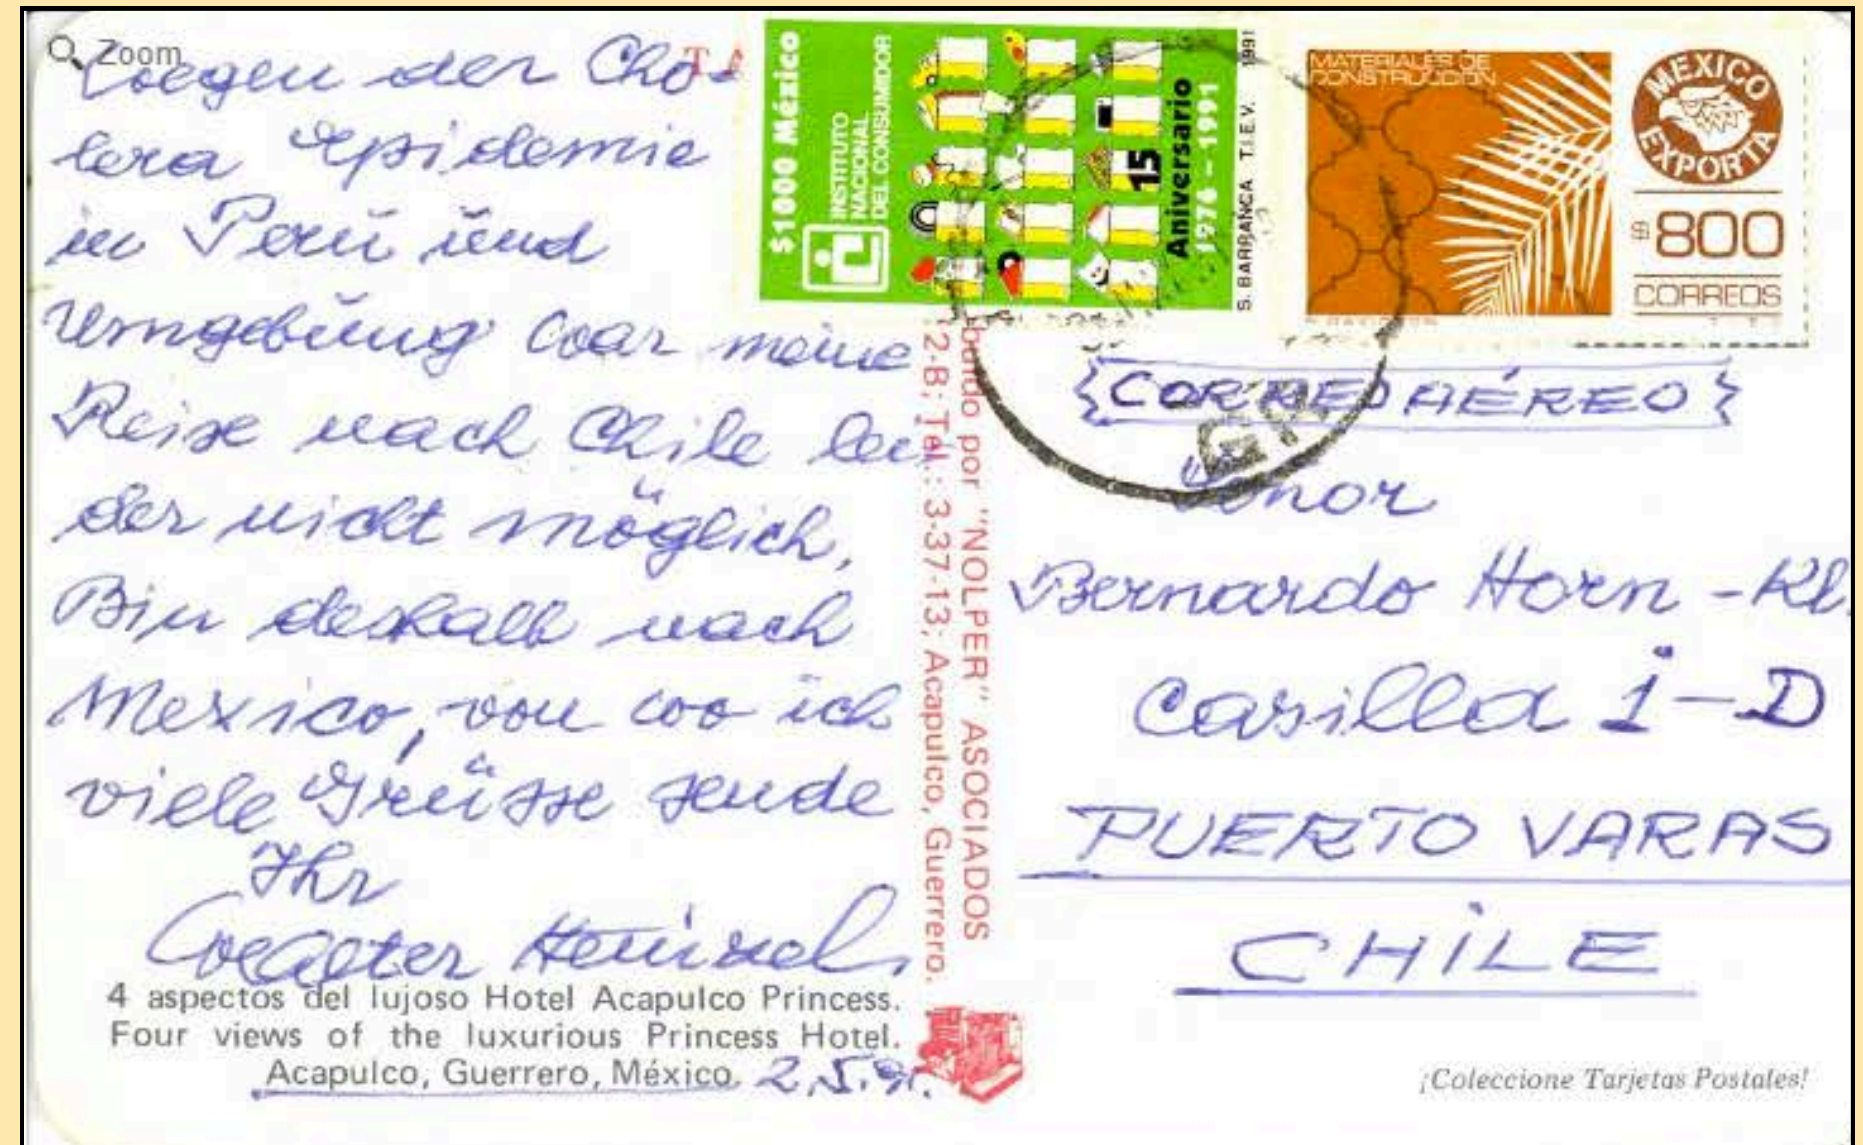 Zoom
Wegen der Cho-
lera Epidemie
in Perú und
Umgebung war meine
Reise nach Chile lei
der nicht möglich,
Bin deshalb nach
Mexico, von wo ich
viele Grüsse sende
Ihr
Walter
4 aspectos del lujoso Hotel Acapulco Princess.
Four views of the luxurious Princess Hotel.
Acapulco, Guerrero, México. 2.5.91.
TA
$1000 México
INSTITUTO
NACIONAL
DEL CONSUMIDOR
15
Aniversario
1976 – 1991
S. BARRANCA T.I.E.V. 1991
MATERIALES DE
CONSTRUCCION
MEXICO
EXPORTA
$800
CORREOS
por "NOLPER" ASOCIADOS
2-B; Tel.: 3-37-13; Acapulco, Guerrero.
CORREO AÉREO
Señor
Bernardo Horn - Kl.
Casilla 1-D
PUERTO VARAS
CHILE
¡Coleccione Tarjetas Postales!